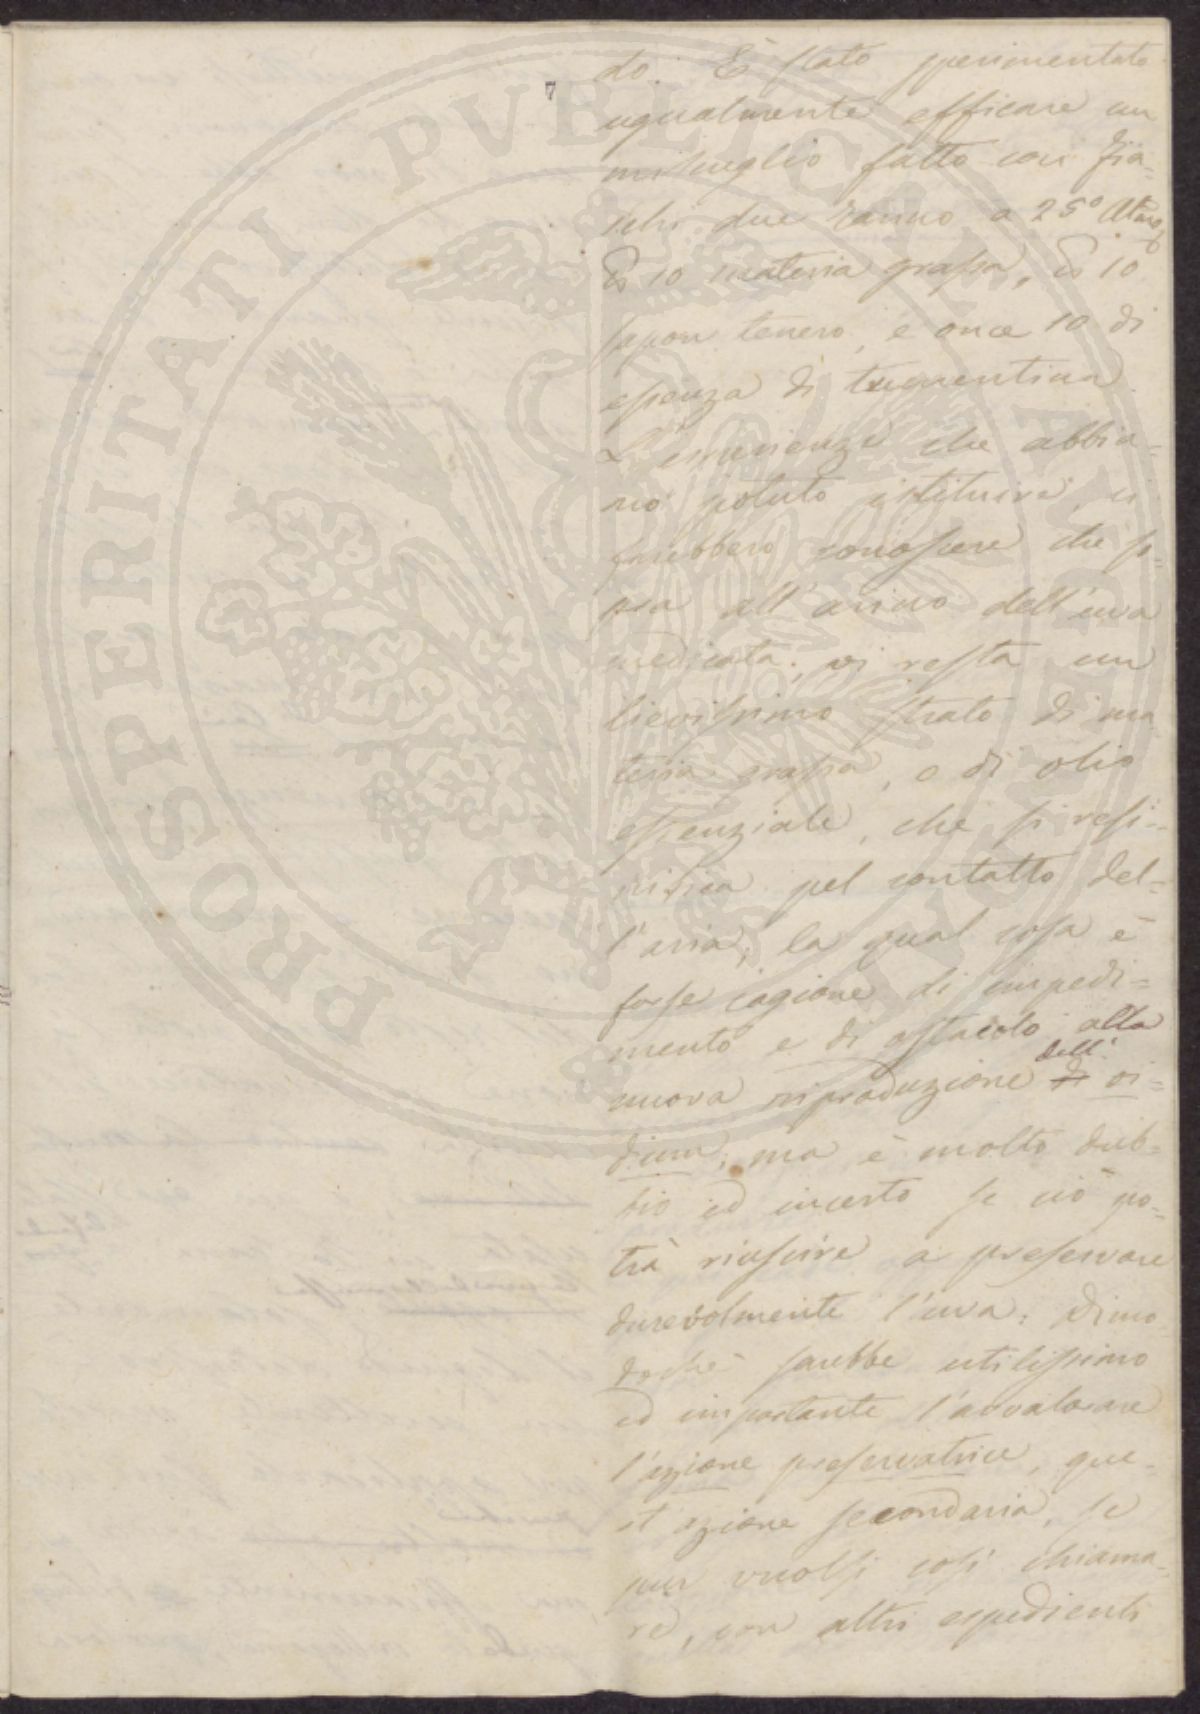 7
do. È stato sperimentato
ugualmente efficace un
miscuglio fatto con fia-
schi due ranno a 25°
10 materia grassa, 10
sapon tenero, e once 10 di
essenza di trementina.
L'esperienze che abbia-
mo potuto istituire, ci
farebbero conoscere che so-
pra all'acino dell'uva
medicata, vi resta un
lievissimo strato di ma-
teria grassa, o di olio
essenziale, che si resi-
nifica pel contatto del=
l'aria; la qual cosa è
forse cagione di impedi=
mento e di ostacolo alla
nuova riproduzione dell' oi=
dium; ma è molto dub-
bio ed incerto se ciò po-
trà riuscire a preservare
durevolmente l'uva. Dimo-
dochè sarebbe utilissimo
ed importante l'avvalorare
l'azione preservatrice, que-
st'azione secondaria, se
pur vuolsi così chiama-
re, con altri espedienti
PROSPERITATI PVBLICAE AVGENDAE